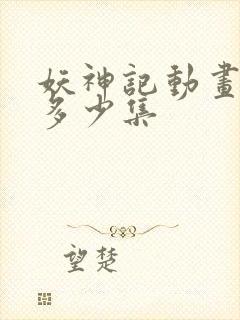 妖神記動畫
多少集
望楚